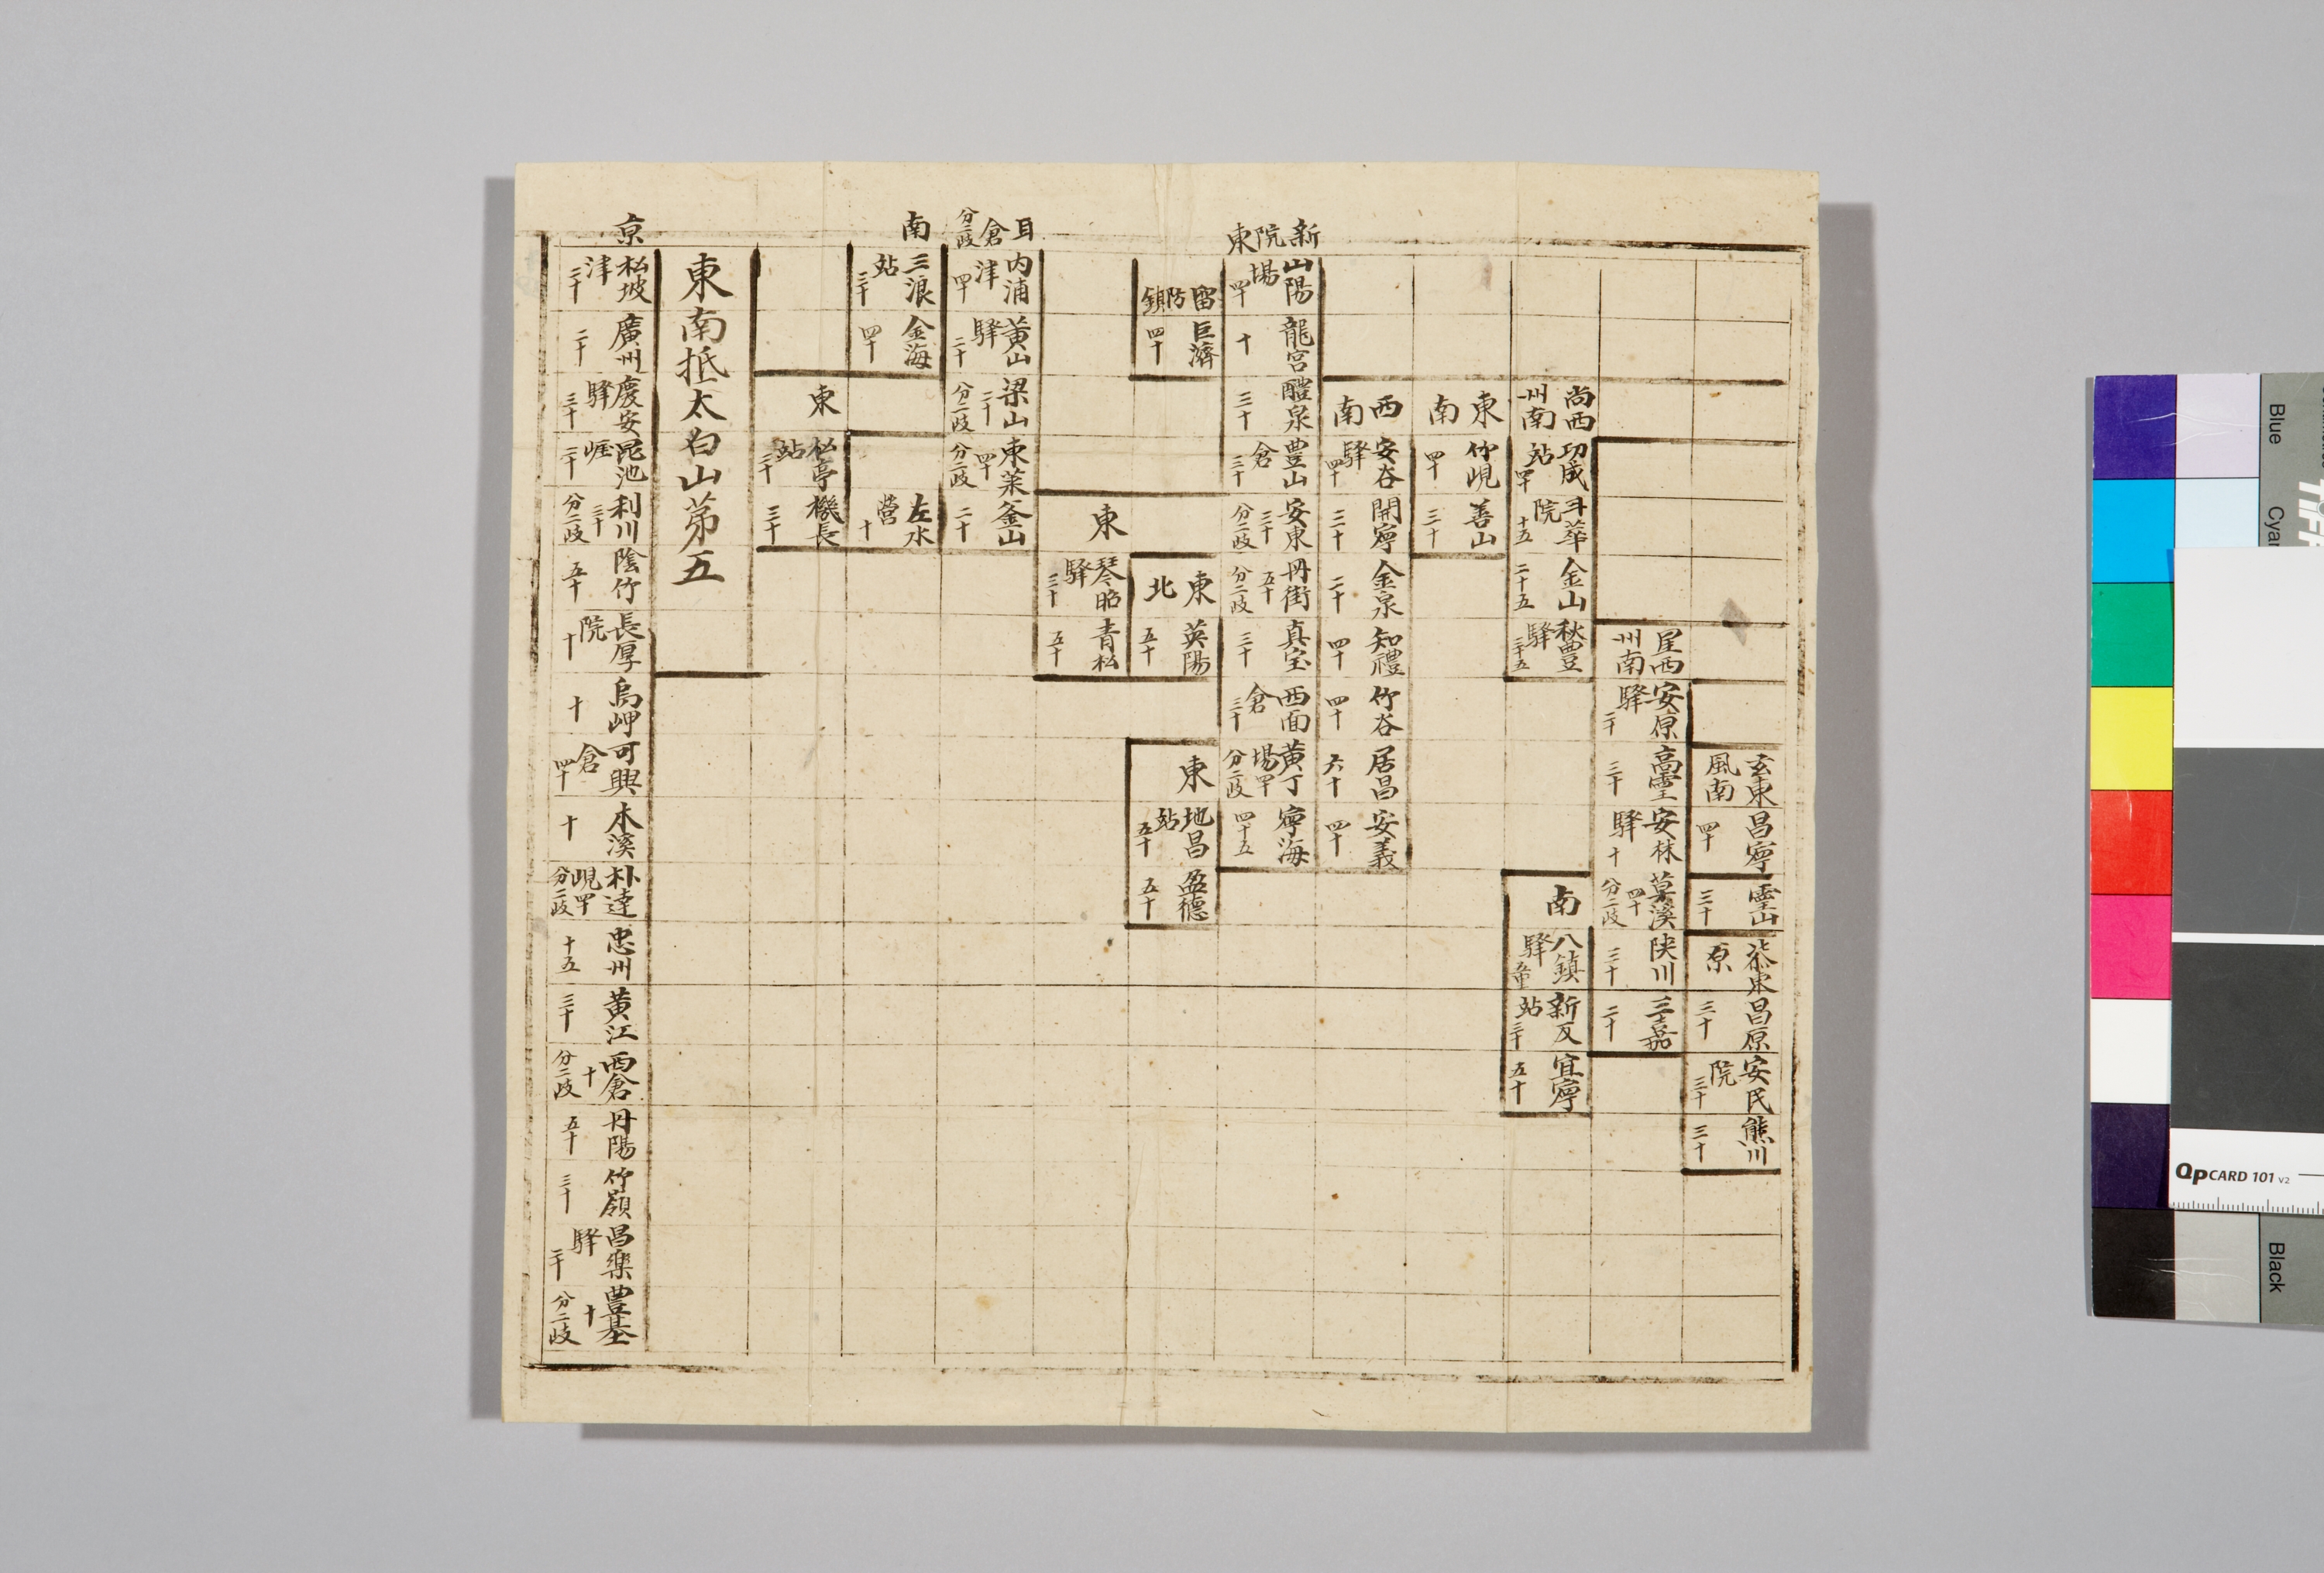 玄東
風南
昌寧
四十
靈山
三十
昌原
三十
安民
院
三十
熊川
三十
星西
州南
安原
驛
二十
高靈
三十
安林
驛
十
草溪
四十
分二歧
陜川
三十
三嘉
二十
尚西
州南
功成
站
四十
院
十五
金山
二十五
秋豊
驛
三十五
南
八鎮
驛
新反
站
三十
宜寧
五十
東
南
竹峴
四十
善山
三十
西
南
安谷
驛
四十
開寧
三十
金泉
二十
知禮
四十
竹谷
四十
居昌
六十
安義
四十
新
院
東
山陽
場
四十
龍宮
十
醴泉
三十
豊山
倉
三十
安東
三十
分二歧
丹街
五十
分二歧
真宝
三十
西面
倉
三十
黃丁
場
四十
分二歧
寧海
四十五
留
防
鎮
巨濟
四十
東
北
英陽
五十
東
地昌
站
五十
盈德
五十
東
琴昭
驛
三十
青松
五十
倉
分二歧
内浦
津
四十
黃山
驛
二十
梁山
二十
分二歧
東萊
四十
分二歧
釜山
二十
南
三浪
站
三十
金海
四十
左水
營
十
東
松亭
站
三十
機長
三十
東南抵太白山第五
京
松坡
津
二十
廣州
二十
慶安
驛
三十
昆池
崖
三十
利川
三十
分二歧
陰竹
五十
長厚
院
十
烏岬
十
可興
倉
四十
木溪
十
朴達
峴
四十
分二歧
忠州
十五
黃江
三十
西倉
十
分二歧
丹陽
五十
竹嶺
三十
昌樂
驛
二十
豊基
十
分二歧
Blue
Cyan
Black
QPCARD 101 v2